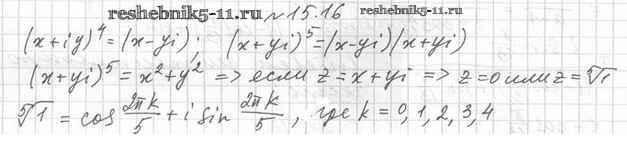 www.reshebnik5-11.ru №15.16 www.reshebnik5-11.ru
(x+iy)⁴=(x-yi); (x+yi)⁵=(x-yi)(x+yi)
(x+yi)⁵=x²+y² => если z=x+yi => z=0 или z=⁵√1
⁵√1 = cos 2πk/5 + i sin 2πk/5, где k=0,1,2,3,4